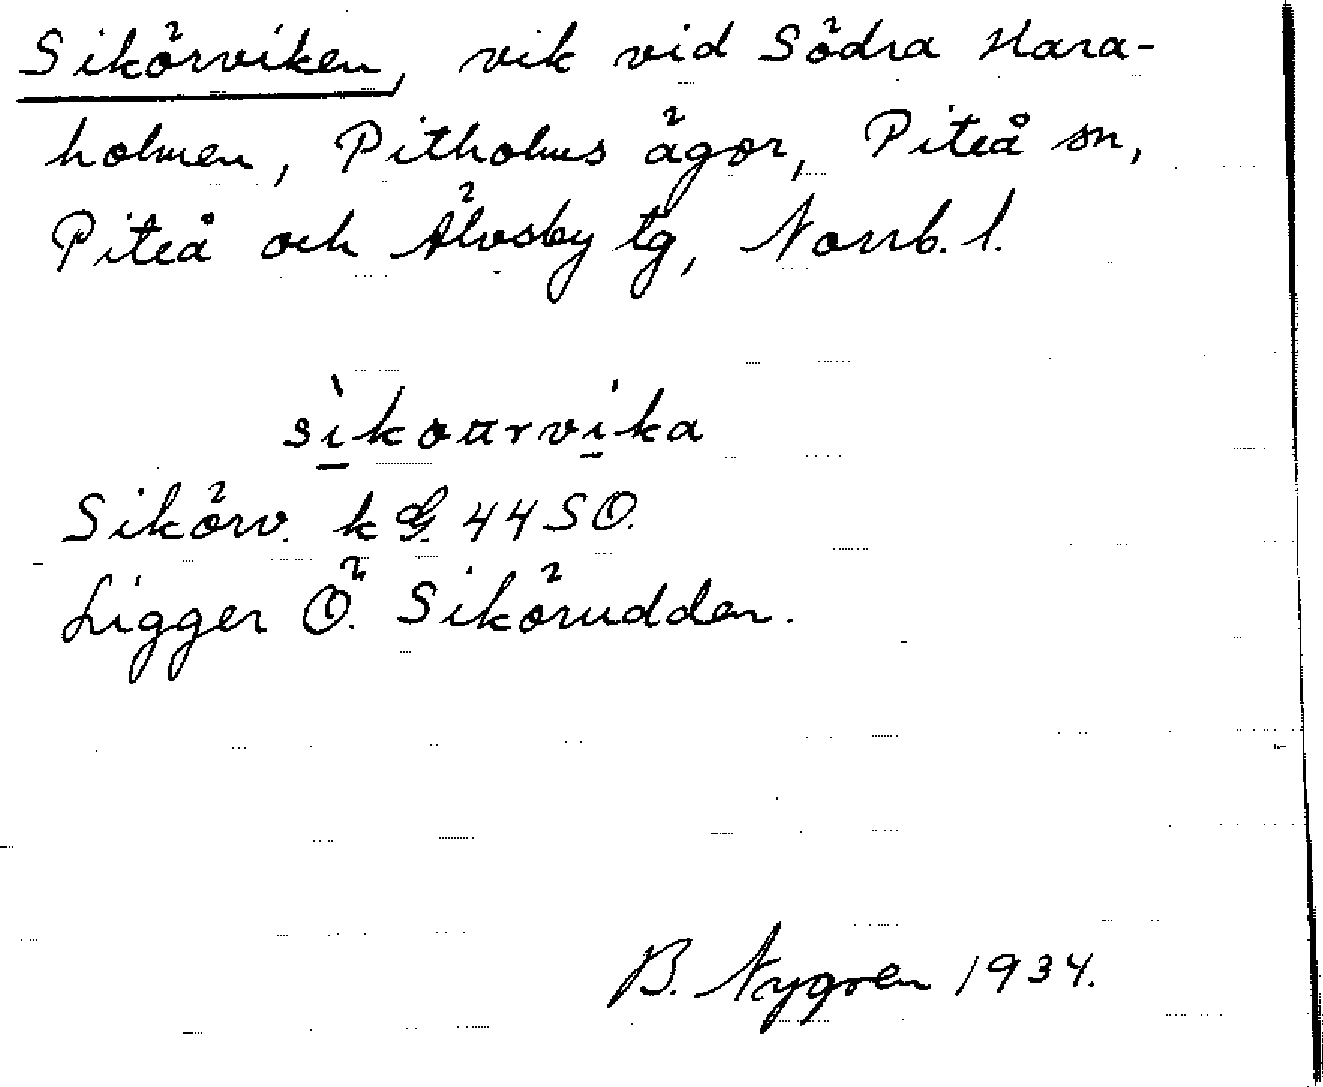 Sikörviken, vik vid Södra Hara-
holmen, Pitholms ägor, Piteå sn,
Piteå och Älvsby tg, Norrb. l.
sìkoπrvi̱ka
Sikörv. k G. 44 SO.
Ligger Ö. Sikörudden.
B. Nygren 1934.